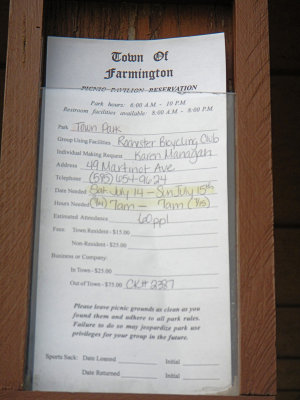 Town Of
Farmington
PICNIC PAVILION RESERVATION
Park hours: 6:00 A.M. - 10 P.M
Restroom facilities available: 8:00 A.M - 8:00 P.M.
Park Town Park
Group Using Facilities Rochester Bicycling Club
Individual Making Request Karen Managan
Address 49 Martinot Ave
Telephone (585) 654-9624
Date Needed Sat July 14 - Sun July 15th
Hours Needed (7/14) 7am - 7am (7/15)
Estimated Attendance 60 ppl
Fees: Town Resident - $15.00
Non-Resident - $25.00
Business or Company:
In Town - $25.00
Out of Town - $75.00 CK# 2387
Please leave picnic grounds as clean as you
found them and adhere to all park rules.
Failure to do so may jeopardize park use
privileges for your group in the future.
Sports Sack: Date Loaned Initial
Date Returned Initial